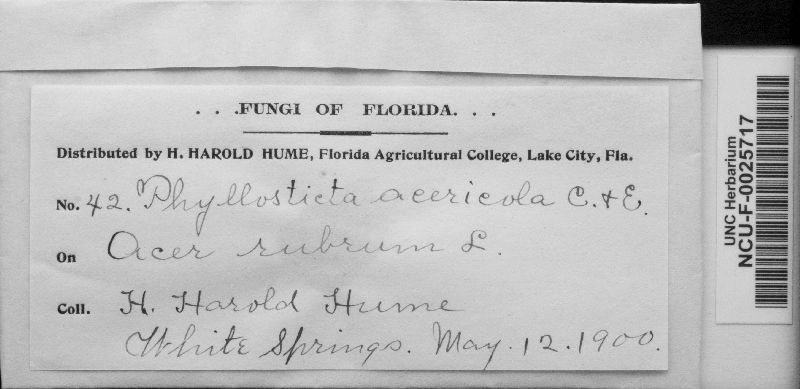 . . .FUNGI OF FLORIDA. . .
Distributed by H. HAROLD HUME, Florida Agricultural College, Lake City, Fla.
No. 42. Phyllosticta acericola C. & E.
On Acer rubrum L.
Coll. H. Harold Hume
White Springs. May. 12. 1900.
UNC Herbarium
NCU-F-0025717